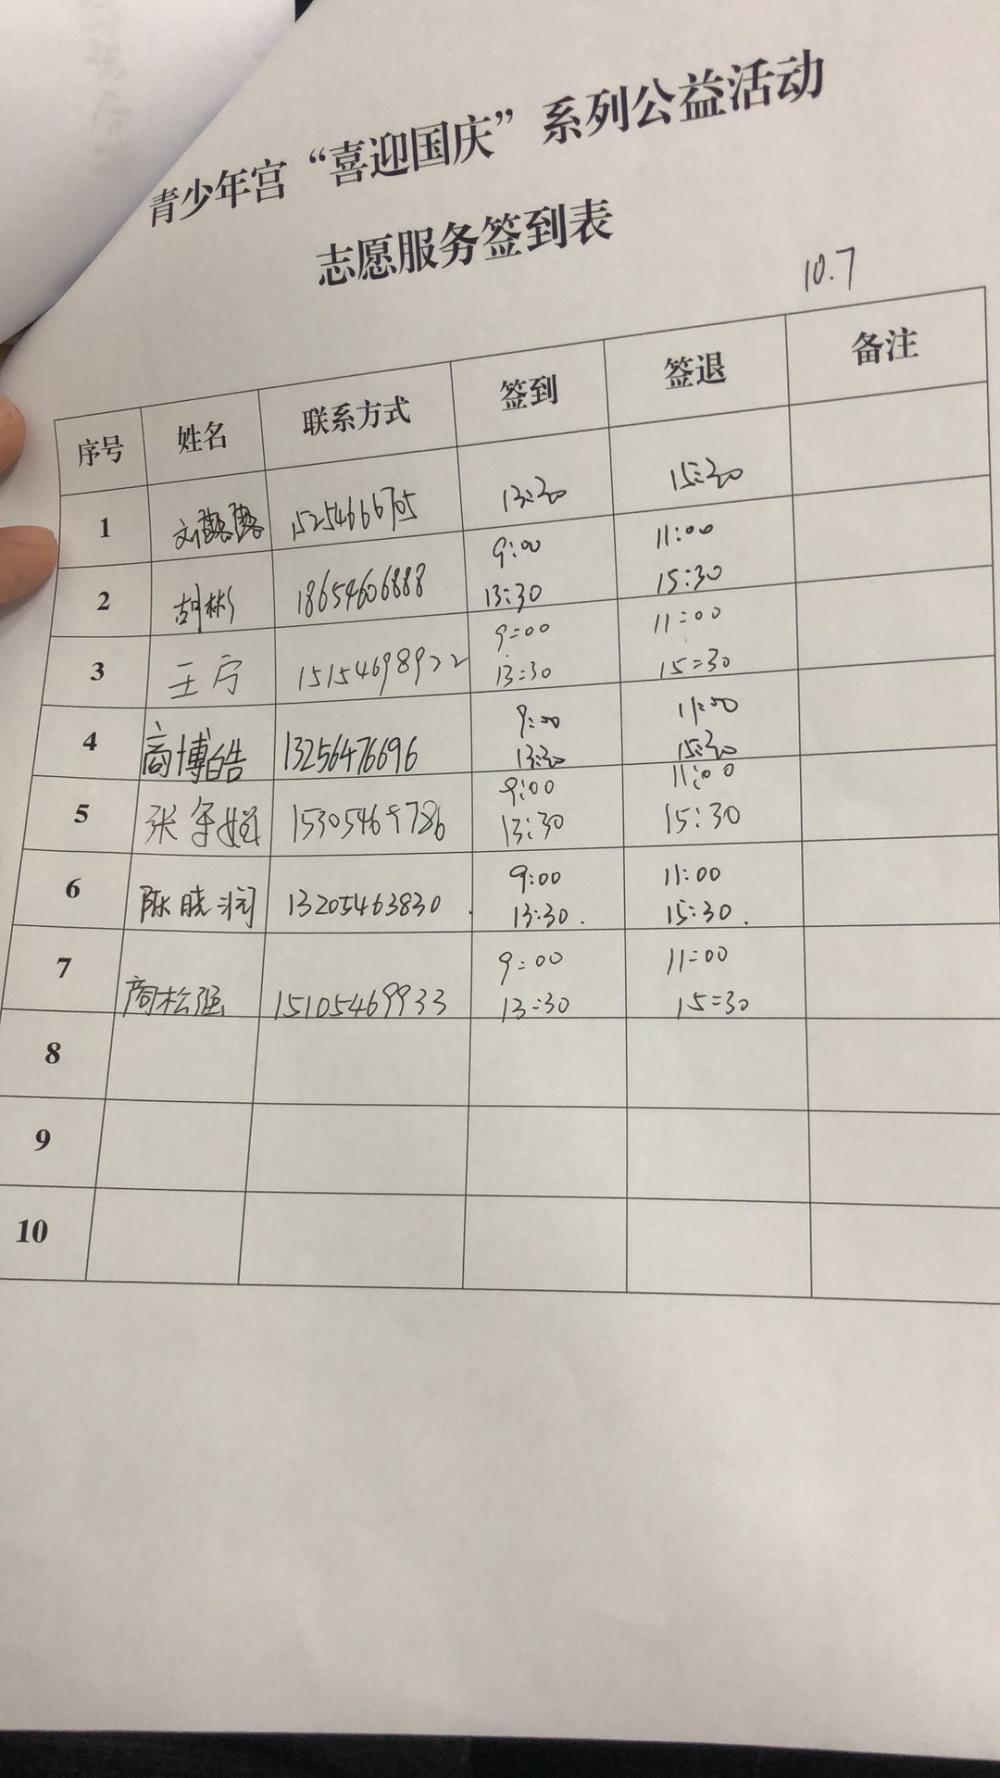 青少年宫“喜迎国庆”系列公益活动
志愿服务签到表
10.7
序号 姓名 联系方式 签到 签退 备注
1 刘露露 15254666705 13:30 15:30
2 胡彬 18654606888 9:00 11:00
13:30 15:30
3 王宁 15154698922 9:00 11:00
13:30 15:30
4 商博皓 13256476696 9:00 11:00
13:30 15:30
5 张 15305469786 9:00 11:00
13:30 15:30
6 陈晓润 13205463830 9:00 11:00
13:30. 15:30.
7 商松强 15105469933 9:00 11:00
13:30 15:30
8
9
10